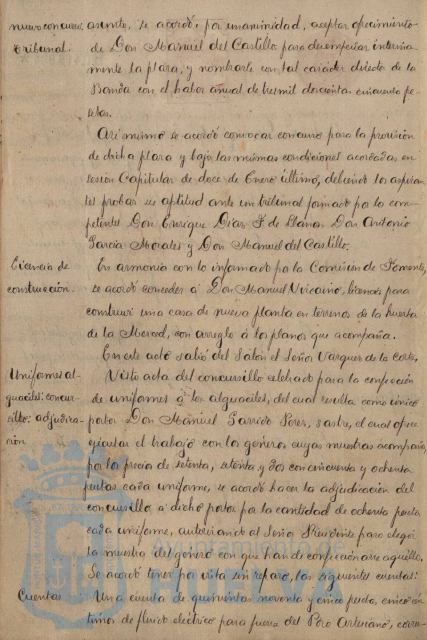 nuevo concurso. asunto, se acordó, por unanimidad, aceptar ofrecimiento
Tribunal. de Don Manuel del Castillo para desempeñar interina
mente la plaza, y nombrarle con tal carácter director de la
Banda con el haber anual de tres mil doscientas cincuenta pe
setas.
Así mismo se acordó convocar concurso para la provisión
de dicha plaza y bajo las mismas condiciones acordadas, en
sesión Capitular de doce de Enero último, debiendo los aspiran
tes probar su aptitud ante un tribunal formado por los com
petentes Don Enrique Díaz F. de Llamas Don Antonio
García Morales y Don Manuel del Castillo.
Licencia de construcción. En armonía con lo informado por la Comisión de Fomento,
se acordó conceder a Don Manuel Vizcaino, licencia para
construir una casa de nueva planta en terrenos de la huerta
de la Merced, con arreglo a los planos que acompaña.
En este acto salió del Salón el Señor Vazquez de la Corte.
Uniformes al- Visto acta del concursillo celebrado para la confección
guaciles: concur- de uniformes a los alguaciles, del cual resulta como único
sillo: adjudica- postor Don Manuel Garrido Perez, sastre, el cual ofrece
ción ejecutar el trabajo con los géneros cuyas muestras acompaña,
por los precios de setenta, setenta y dos con cincuenta y ochenta
pesetas cada uniforme, se acordó hacer la adjudicación del
concursillo a dicho postor por la cantidad de ochenta pesetas
cada uniforme, autorizando al Señor Presidente para elegir
la muestra del género con que han de confeccionarse aquellos.
Se acordó tener por vista sin reparo, las siguientes cuentas:
Cuentas Una cuenta de quinientas noventa y cinco pesetas, cinco cén
timos de fluido eléctrico para fuerza del Pozo Artesiano, corres-